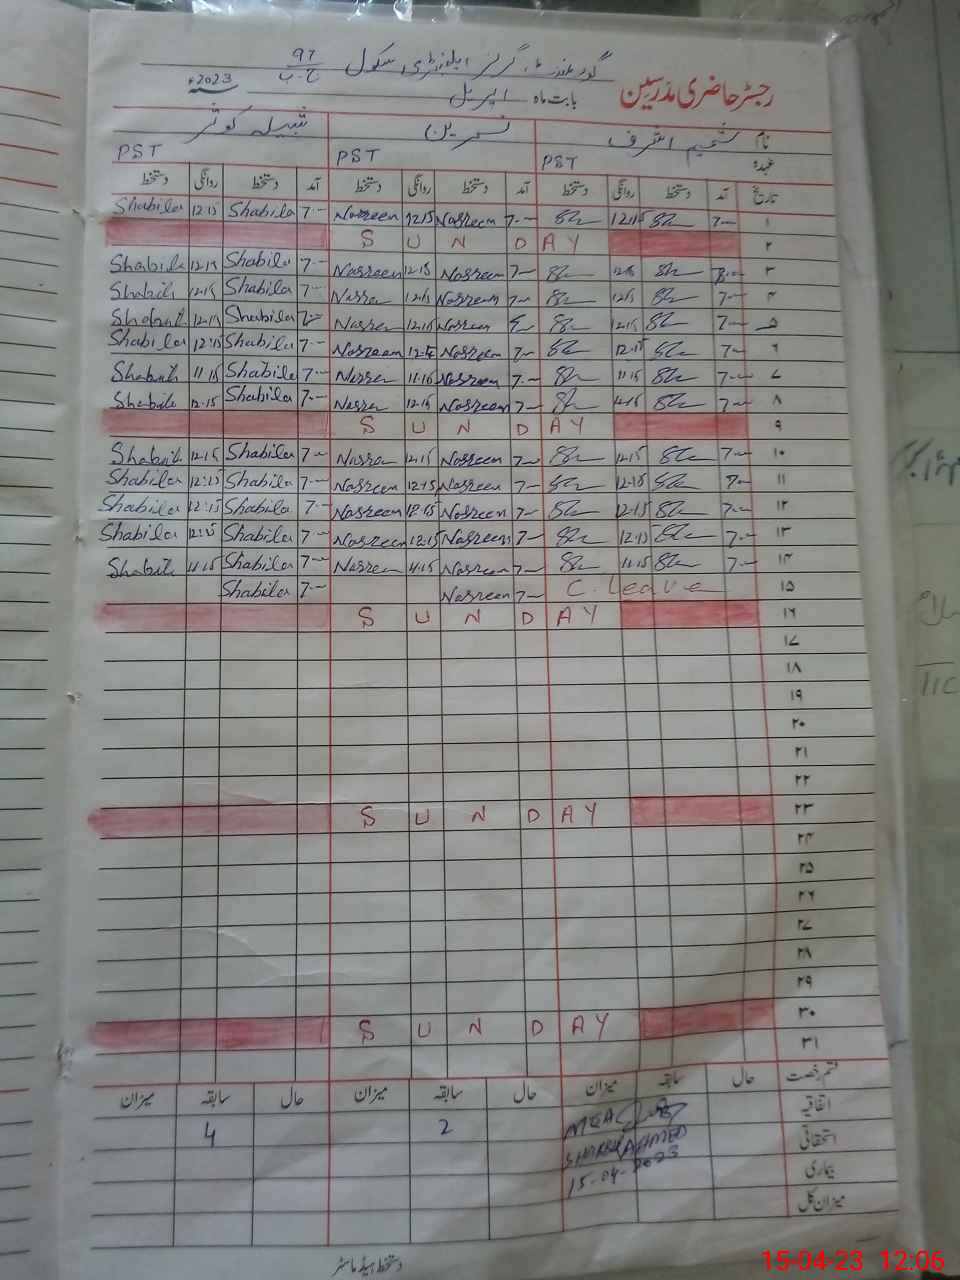 گورنمنٹ گرلز ایلیمنٹری سکول 97 ج.ب
رجسٹر حاضری مدرسین بابت ماہ اپریل سنہ 2023ء
نام شمیم اشرف نسرین شبیلہ کوثر
عہدہ PST PST PST
تاریخ آمد دستخط روانگی دستخط آمد دستخط روانگی دستخط آمد دستخط روانگی دستخط
۱ 7— 12:15 7— Nasreen 12:15 Nasreen 7— Shabila 12:15 Shabila
۲ S U N D A Y
۳ 12:15 7— Nasreen 12:15 Nasreen 7— Shabila 12:15 Shabila
۴ 7— 12:15 7— Nasreen 12:15 7— Shabila 12:15
۵ 7— 12:15 Nasreen 12:15 Shabila 12:15
۶ 7— 12:15 7— Nasreen Nasreen 7— Shabila 12:15 Shabila
۷ 7— 11:15 7— Nasreen 11:15 7— Shabila 11:15
۸ 7— 12:15 7— Nasreen 12:15 7— Shabila 12:15
۹ S U N D A Y
۱۰ 7— 12:15 7— Nasreen 12:15 7— Shabila 12:15
۱۱ 12:15 7— Nasreen 12:15 Nasreen 7— Shabila 12:15 Shabila
۱۲ 7— 12:15 7— Nasreen 12:15 Nasreen 7— Shabila 12:15 Shabila
۱۳ 7— 12:15 7— Nasreen 12:15 Nasreen 7— Shabila 12:15 Shabila
۱۴ 7— 11:15 7— Nasreen 11:15 Nasreen 7— Shabila 11:15
۱۵ C. Leave 7— Nasreen 7— Shabila
۱۶ S U N D A Y
۱۷
۱۸
۱۹
۲۰
۲۱
۲۲
۲۳ S U N D A Y
۲۴
۲۵
۲۶
۲۷
۲۸
۲۹
۳۰ S U N D A Y
۳۱
قسم رخصت حال سابقہ میزان حال سابقہ میزان حال سابقہ میزان
اتفاقیہ MEA 2 4
استحقاقی AHMED
بیماری 15-04-2023
میزان کل
دستخط ہیڈ ماسٹر
15-04-23 12:06